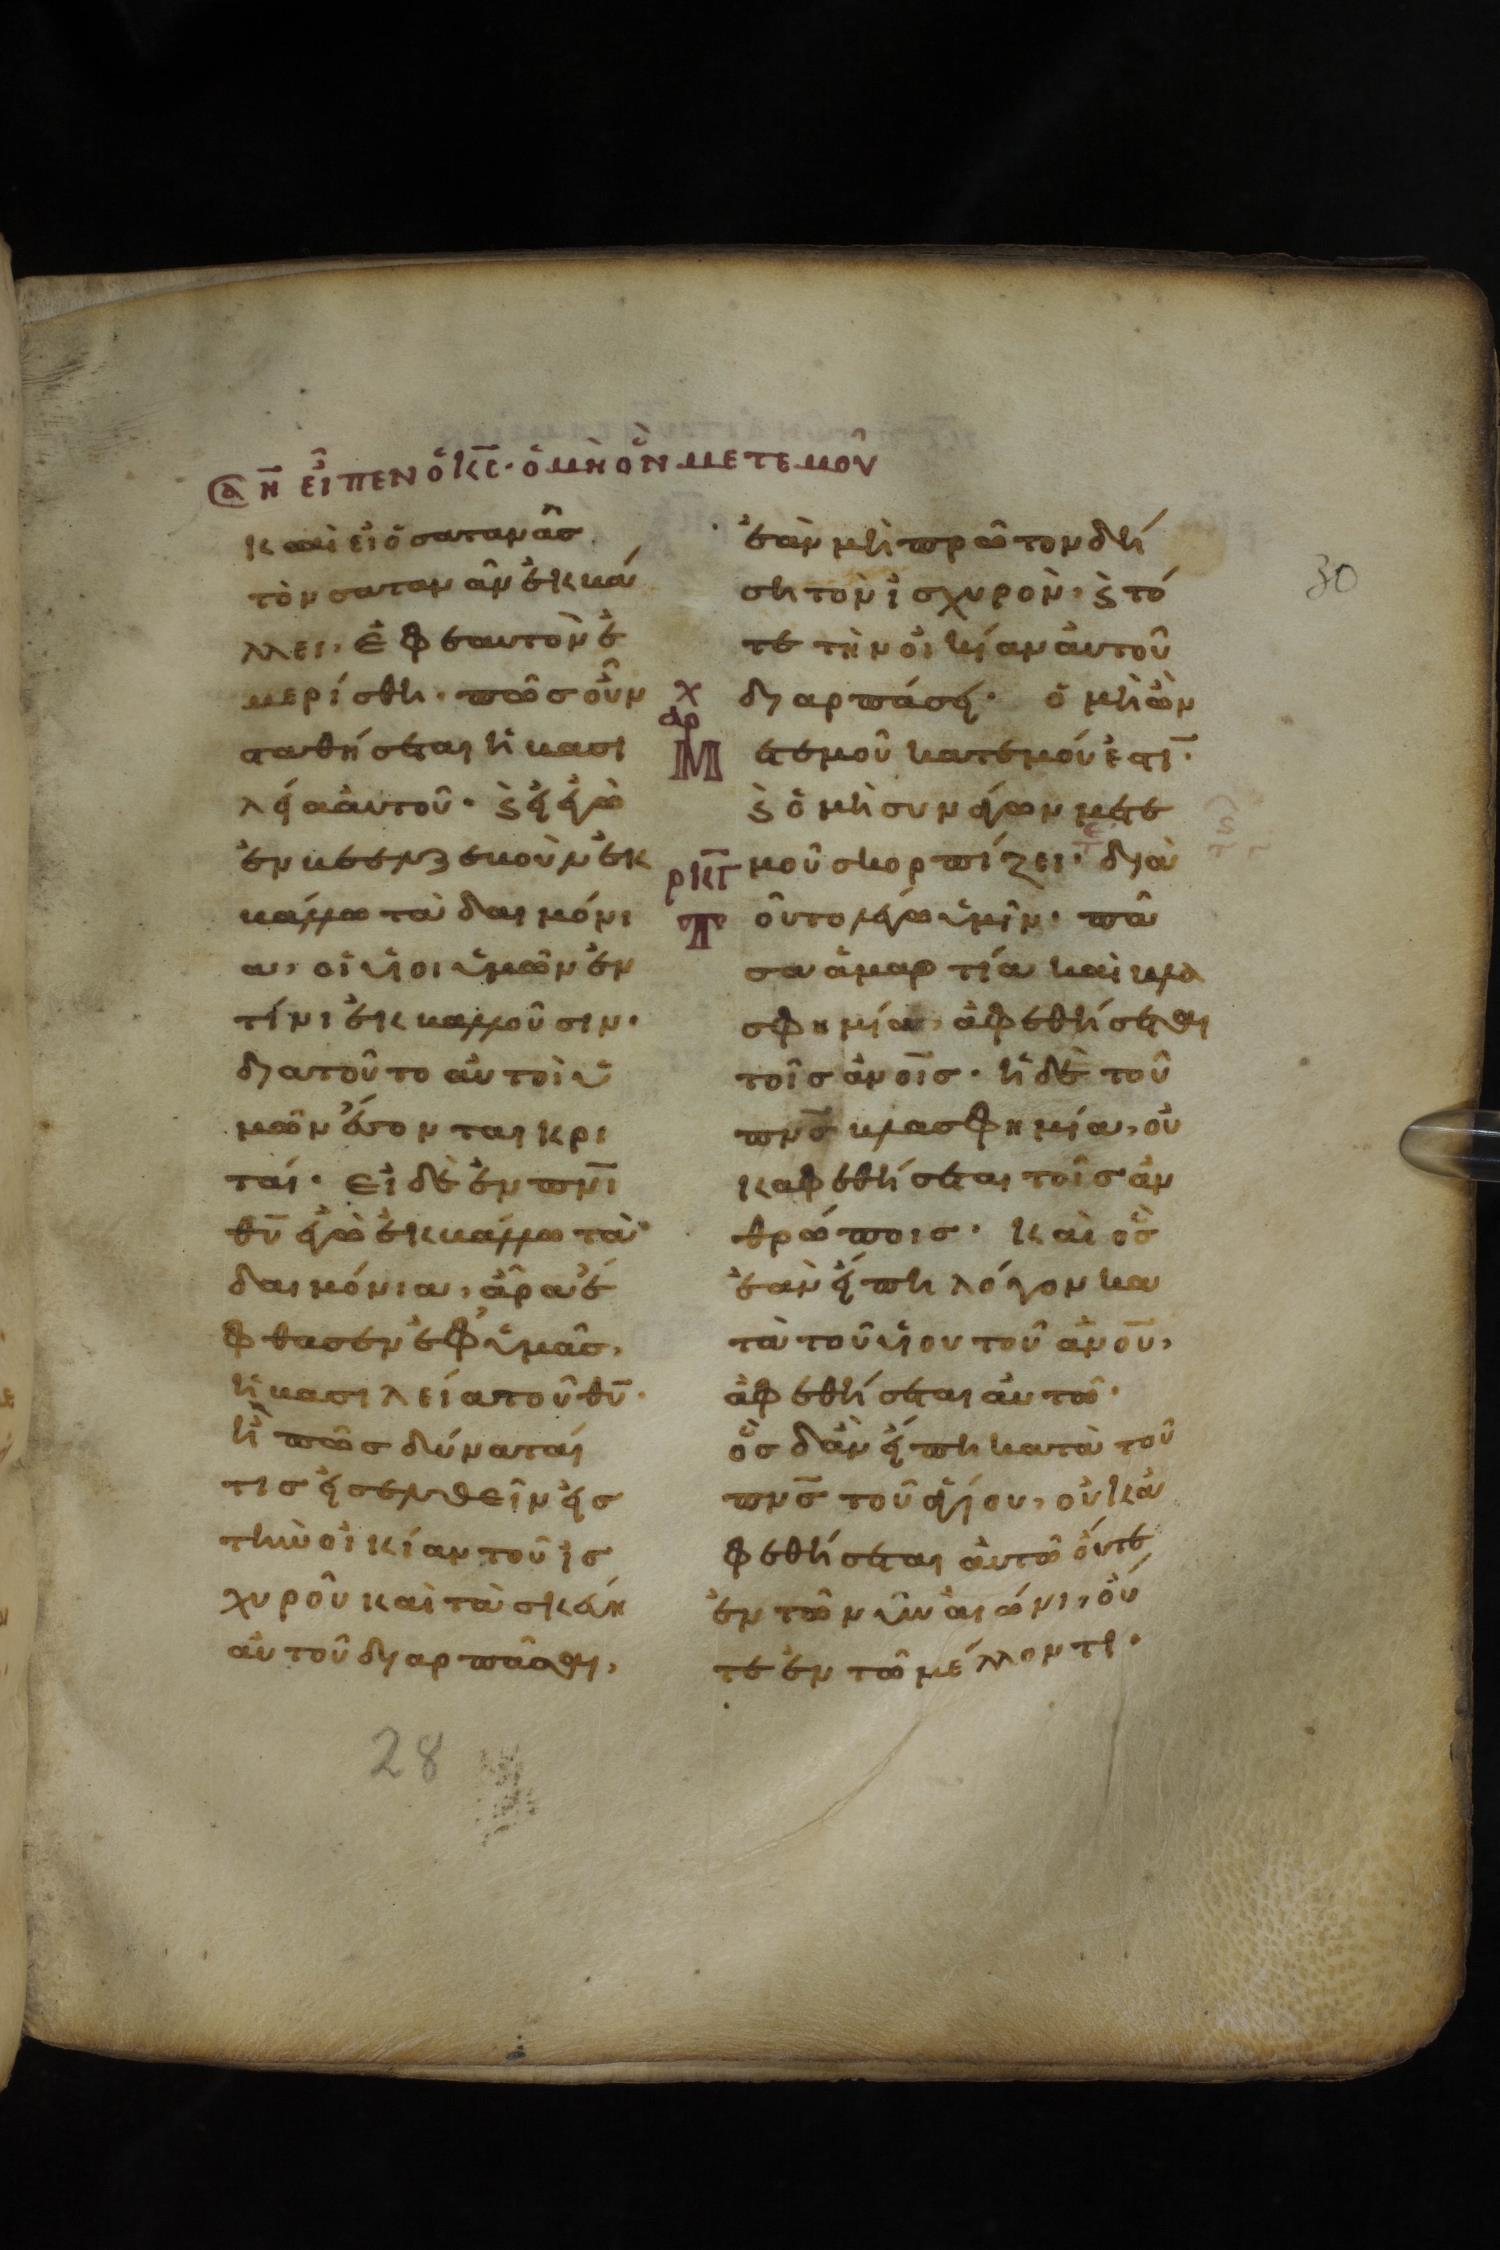 εἶπεν ὁ κ̅ς̅· ὁ μὴ ὢν μετ εμοῦ
καὶ εἰ ὁ σατανᾶσ
τὸν σατανᾶν ἐκβά
λλει, εφ εαυτὸν ἐ
μερίσθη· πῶσ οὖν
σταθήσεται ἡ βασι
λεία ἀυτοῦ· καὶ εἰ ἐγὼ
ἐν βεελζεβοὺλ ἐκ
βάλλω τὰ δαιμόνι
α, οἱ υἱοι ὑμῶν ἐν
τίνι ἐκβαλλοῦσιν·
διατοῦτο ἀυτοὶ ὑ
μῶν ἔσονται κρι
ταί· Ει δὲ ἐν π̅ν̅ι̅
θ̅υ̅ ἐγὼ ἐκβάλλω τὰ
δαιμόνια, ἆρα ἔ
φθασεν ἐφ' ὑμᾶσ,
ἡ βασιλεία τοῦ θ̅υ̅·
ἢ πῶσ δύναταί
τισ ἐισελθεῖν ἐισ
τὴν ὀικίαν τοῦ ἰσ
χυροῦ καὶ τὰ σκεύη
ἀυτοῦ διαρπᾶσαι,
ἐὰν μὴ πρῶτον δή
ση τὸν ἰσχυρὸν, καὶ τό
τε τὴν ὀικίαν ἀυτοῦ
διαρπάσει· ὁ μὴ ὢν
χ
αρ
Μ
ετεμοῦ κατεμόυ ἐστι̅·
καὶ ὁ μὴ συνάγων μετε
ρκγ̅
μοῦ σκορπίζει· διὰ
Τ
οῦτο λέγω ὑμῖν· πᾶ
σα ἁμαρτία καὶ βλα
σφημία, ἀφεθήσεται
τοῖσ ἀν̅ο̅ι̅σ· ἡ δὲ τοῦ
π̅ν̅σ̅ βλασφημία, ὀυ
κ αφεθήσεται τοῖσ ἀν
θρώποισ· Καὶ ὃσ
ἐὰν ἔιπη λόγον κα
τὰ τοῦ υἱου τοῦ ἀν̅ο̅υ̅,
ἀφεθήσεται ἀυτῶ·
ὃσ δ ἂν ἔιπη κατὰ τοῦ
π̅ν̅σ̅ τοῦ ἁγίου, ὀυκ ἀ
φεθήσεται ἀυτῶ ὄυτε
ἐν τῶ νῦν ἀιώνι, ὄυ
τε ἐν τῶ μέλλοντι·
30
28